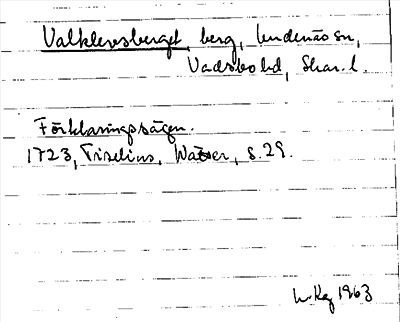 Valklevsberget, berg, Undenäs sn,
Vadsbo hd, Skar. l.
Förklaringssägen.
1723, Tiselius, Wätter, s. 29.
1963